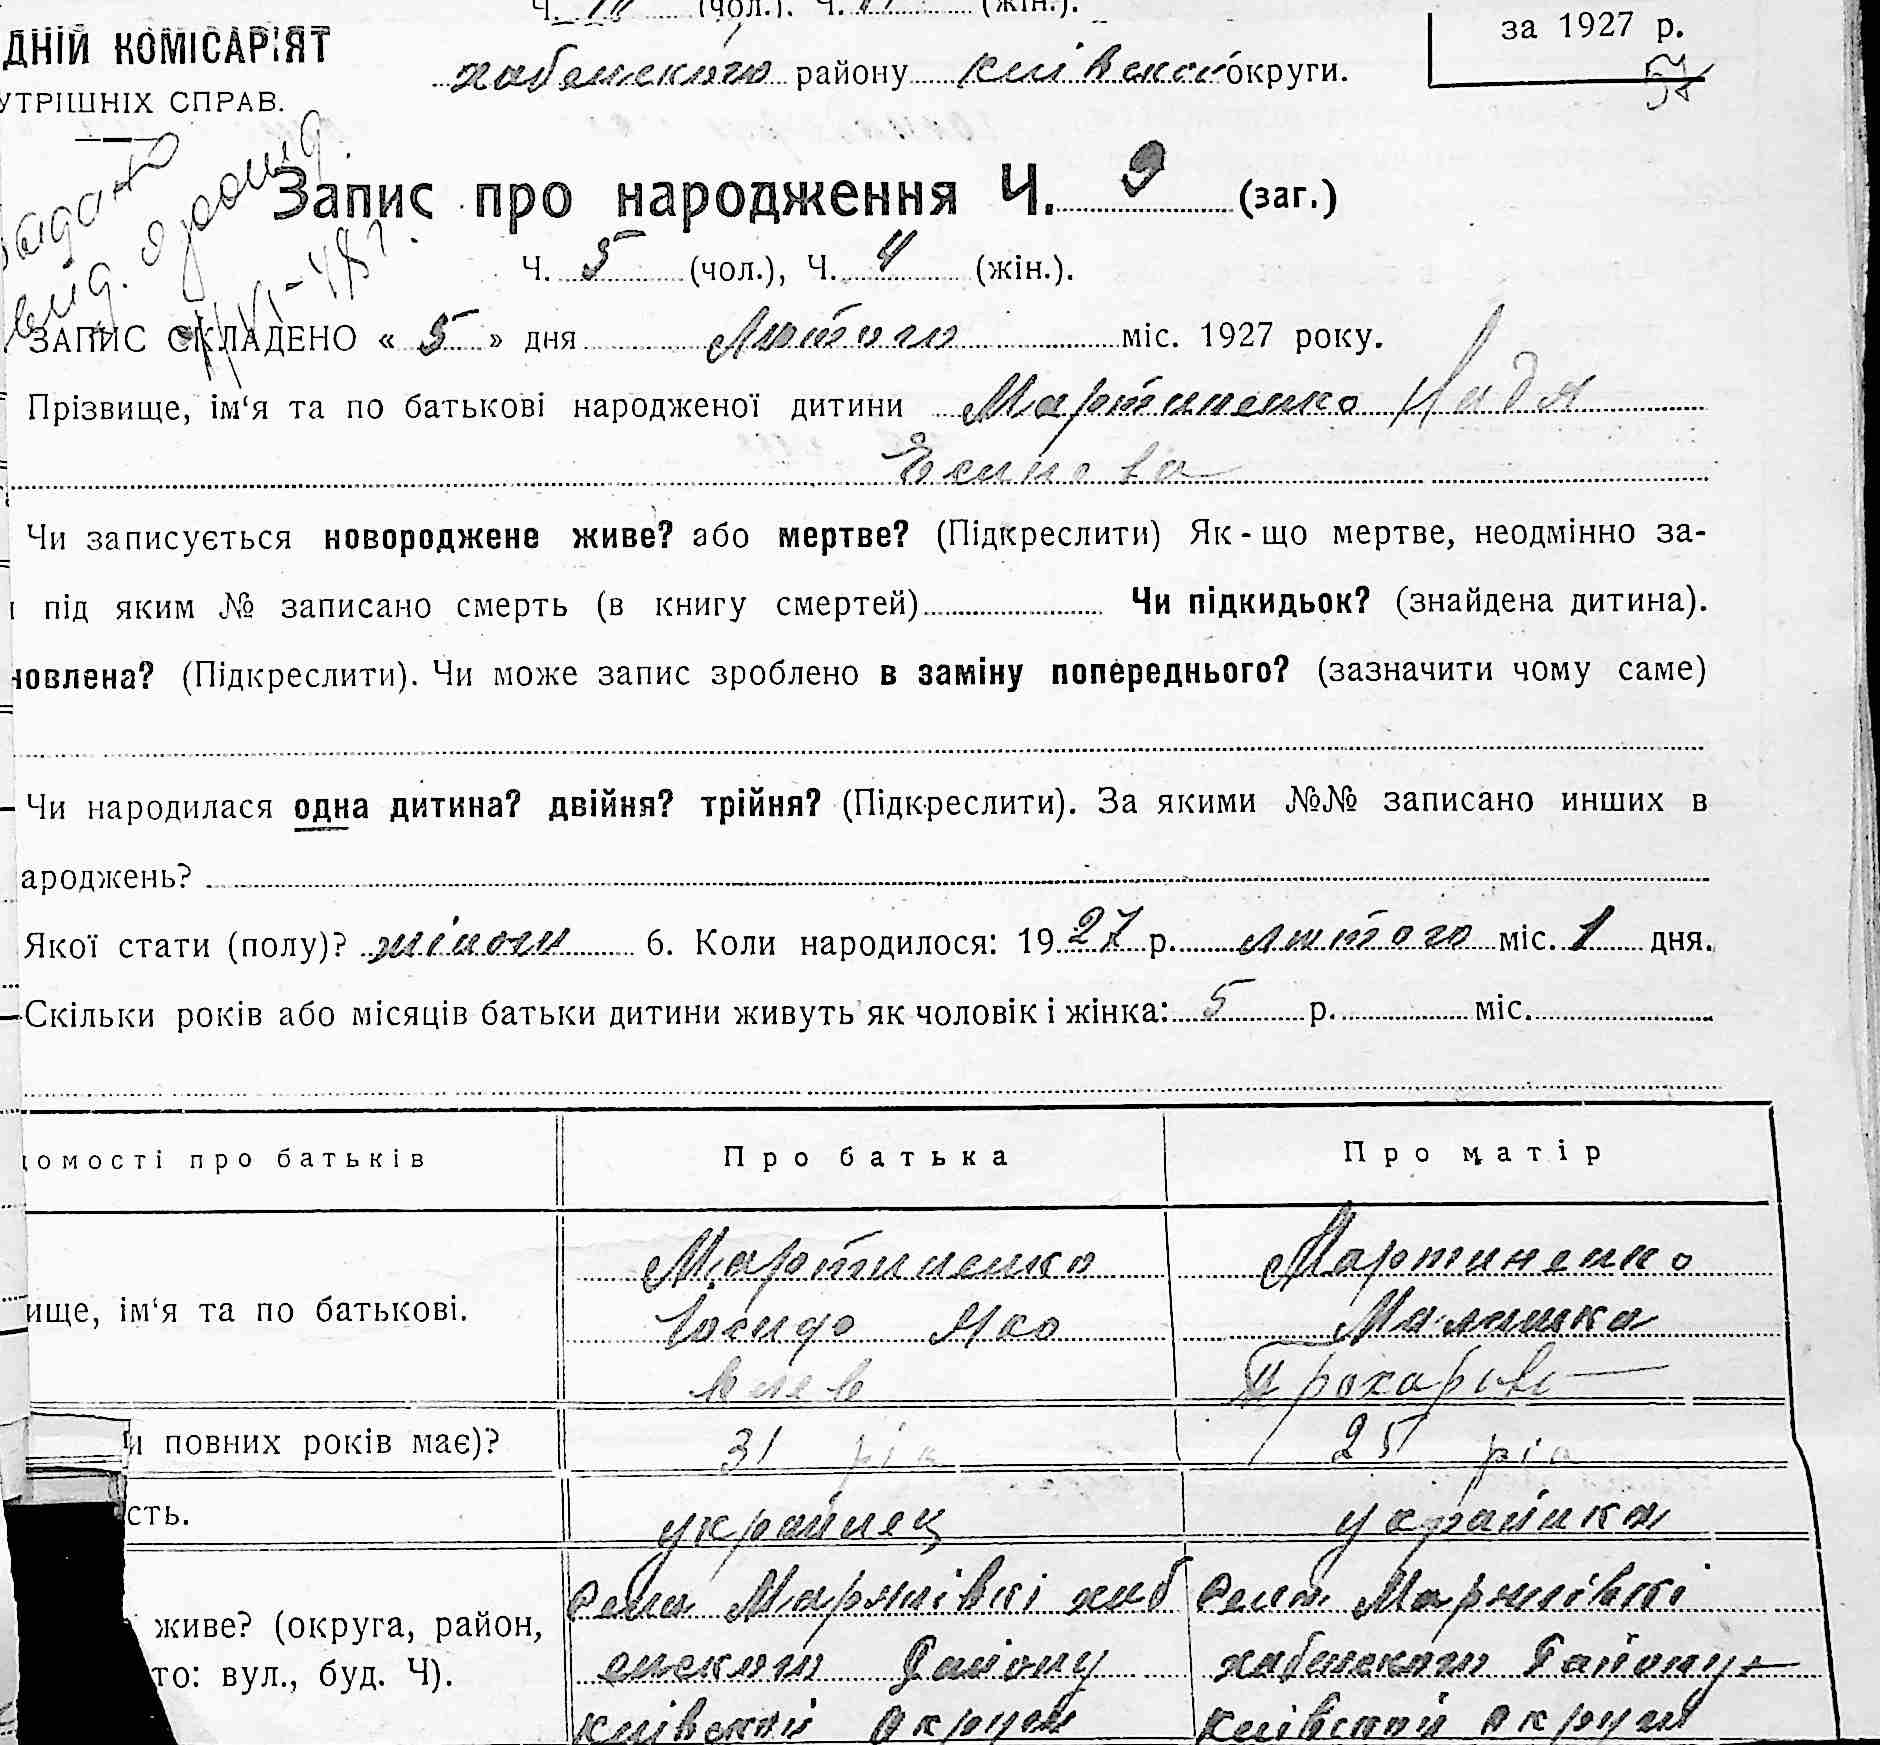 Ч. 10 (чол.). Ч. (жін.).
ДНІЙ КОМІСАРІЯТ
УТРІШНІХ СПРАВ.
хабенського району київської округи.
за 1927 р.
видано
Запис про народження Ч. 9 (заг.)
Ч. 5 (чол.), Ч. 4 (жін.).
ЗАПИС СКЛАДЕНО « 5 » дня Лютого міс. 1927 року.
Прізвище, ім‘я та по батькові народженої дитини Мартиненко Надя
Чи записується новороджене живе? або мертве? (Підкреслити) Як-що мертве, неодмінно за-
під яким № записано смерть (в книгу смертей) Чи підкидьок? (знайдена дитина).
новлена? (Підкреслити). Чи може запис зроблено в заміну попереднього? (зазначити чому саме)
Чи народилася одна дитина? двійня? трійня? (Підкреслити). За якими №№ записано инших в
ароджень?
Якої стати (полу)? жіночи 6. Коли народилося: 19 27 р. лютого міс. 1 дня.
Скільки років або місяців батьки дитини живуть як чоловік і жінка: 5 р. міс.
омості про батьків Про батька Про матір
Мартиненко Мартиненко
ище, ім‘я та по батькові. Іосипо Яко Малашка
влев Прохарові
и повних років має)? 31 рік 25 рік
сть. українец українка
Села Мартиівкі хаб Села Мартиівкі
живе? (округа, район, енского Району хабенского Району
то: вул., буд. Ч). київской округи київской округи